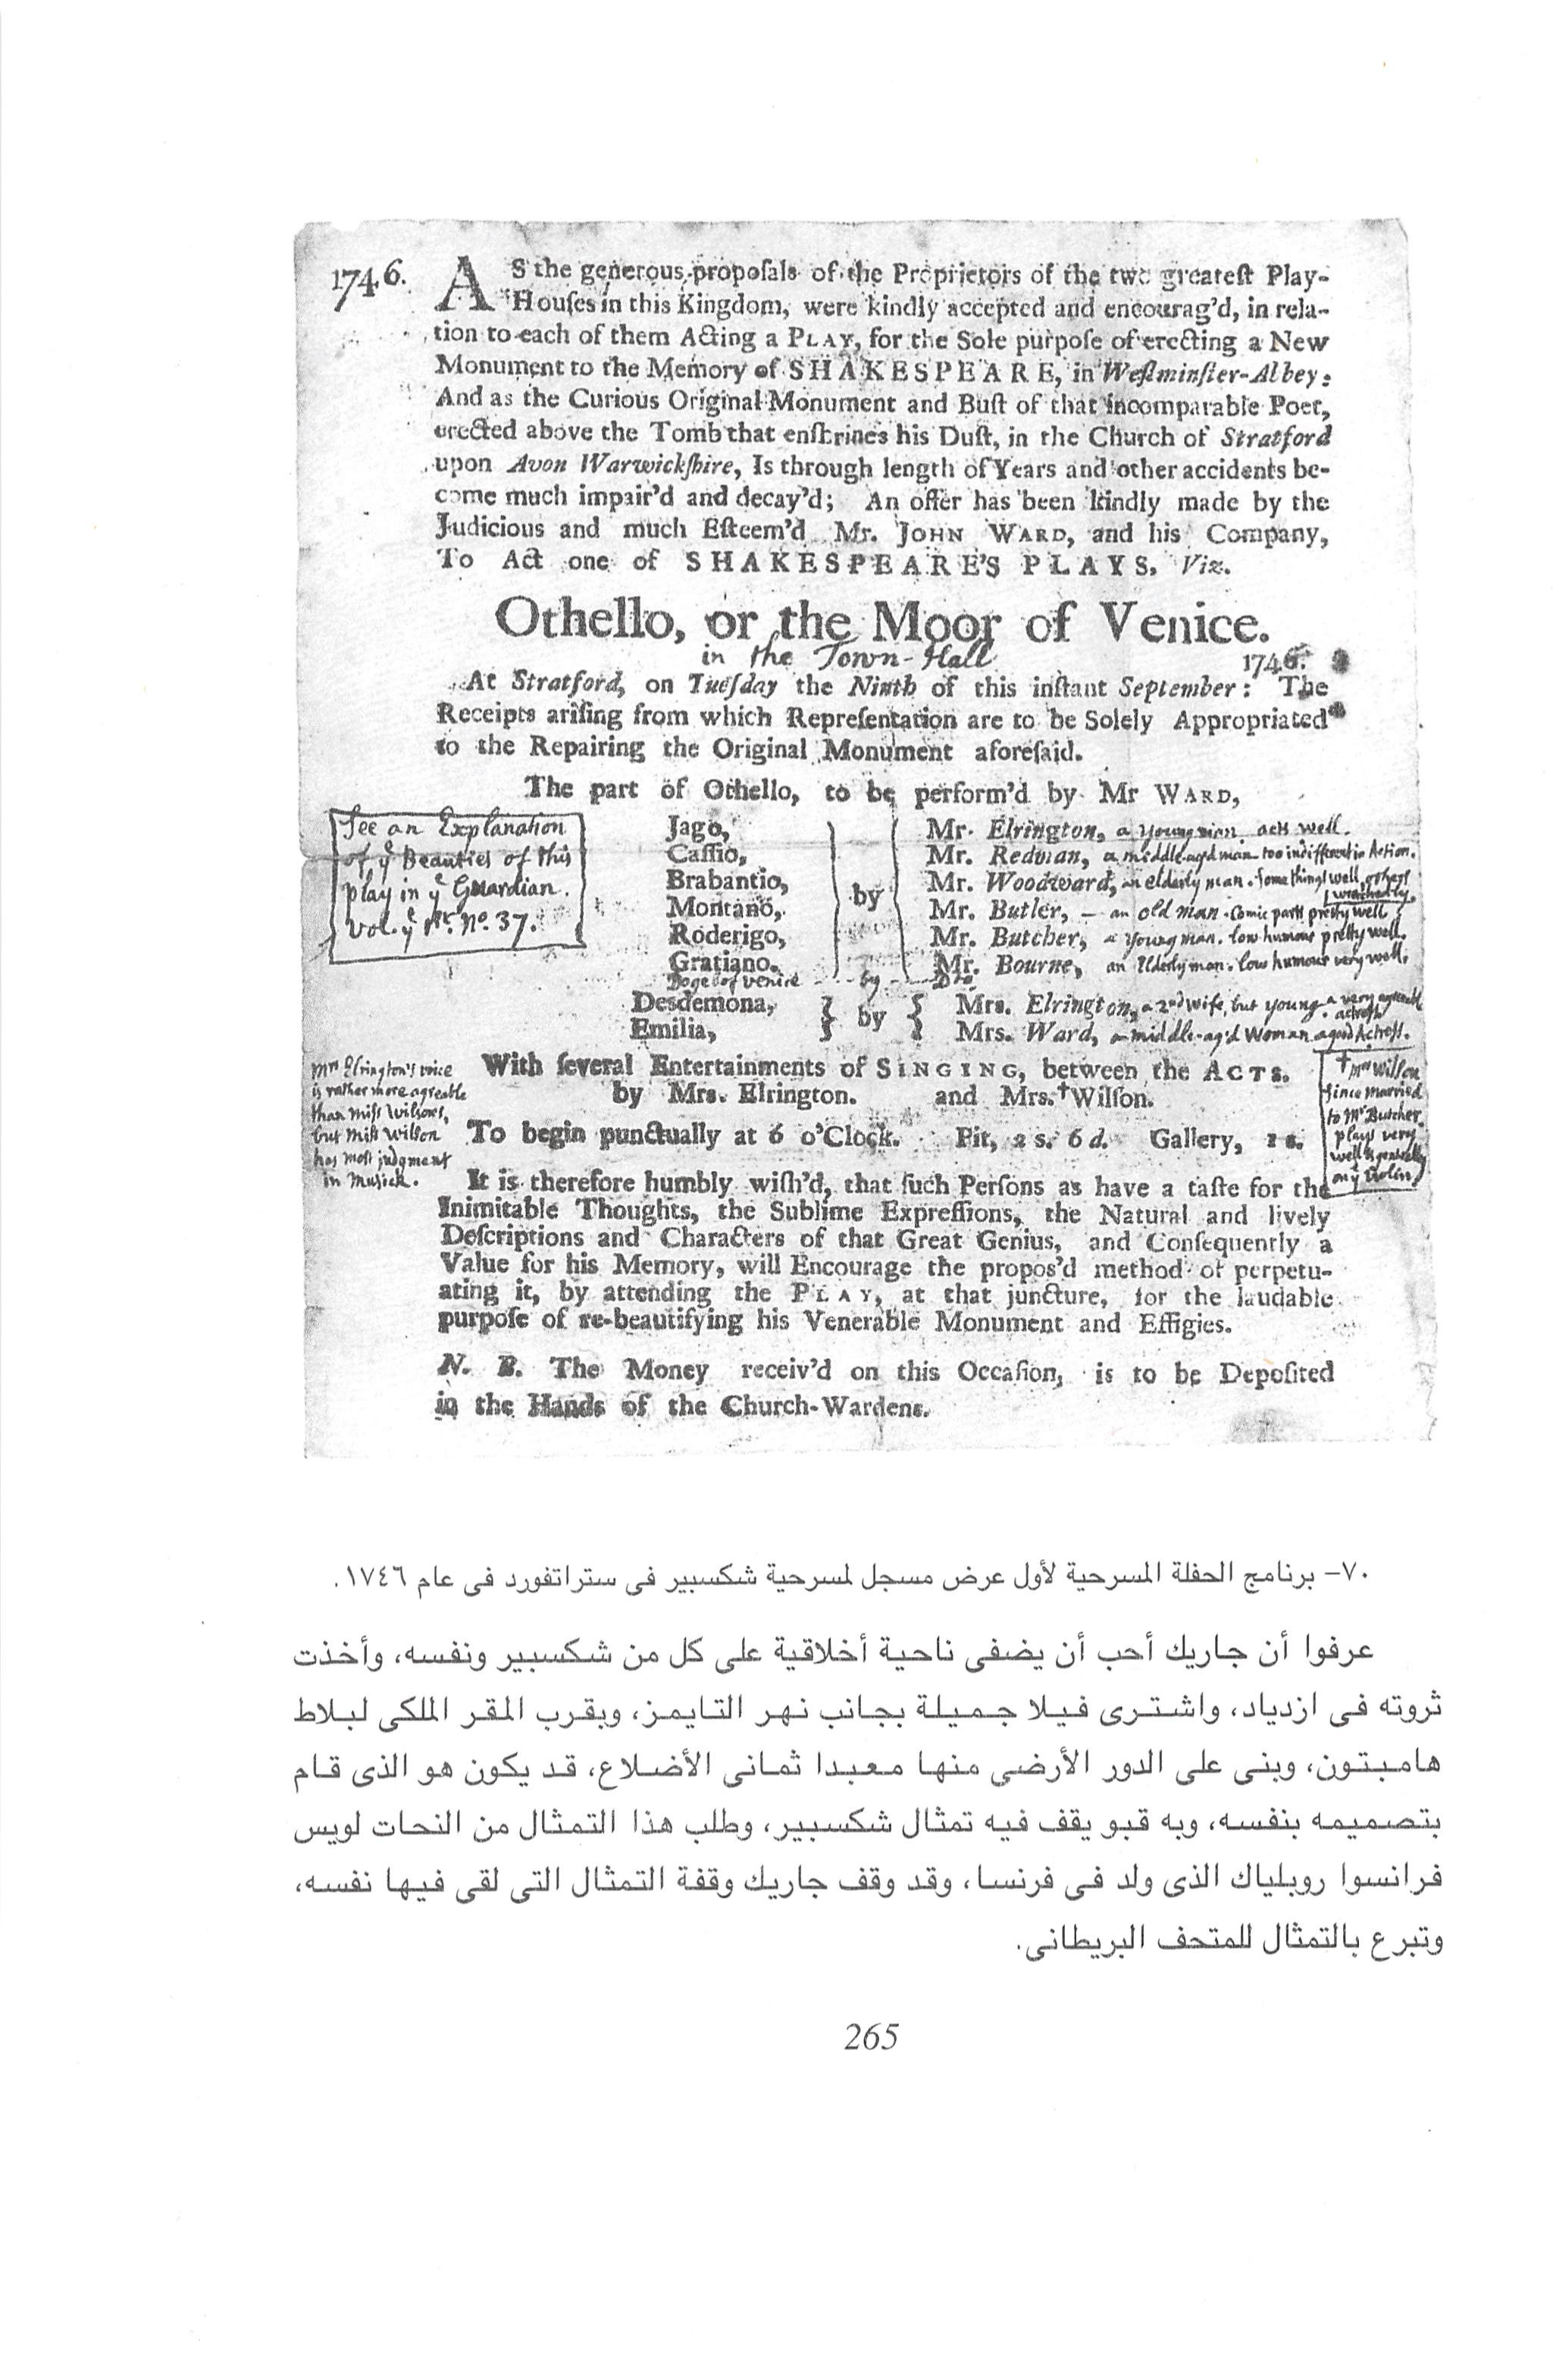 1746.
AS the generous proposals of the Proprietors of the two greatest Play-
Houses in this Kingdom, were kindly accepted and encourag'd, in rela-
tion to each of them Acting a PLAY, for the Sole purpose of erecting a New
Monument to the Memory of SHAKESPEARE, in Westminster-Abbey:
And as the Curious Original Monument and Bust of that incomparable Poet,
erected above the Tomb that enshrines his Dust, in the Church of Stratford
upon Avon Warwickshire, Is through length of Years and other accidents be-
come much impair'd and decay'd; An offer has been kindly made by the
Judicious and much Esteem'd Mr. JOHN WARD, and his Company,
To Act one of SHAKESPEARE'S PLAYS, Viz.
Othello, or the Moor of Venice.
in the Town-Hall 1746.
At Stratford, on Tuesday the Ninth of this instant September: The
Receipts arising from which Representation are to be Solely Appropriated
to the Repairing the Original Monument aforesaid.
The part of Othello, to be perform'd by Mr WARD,
See an Explanation
of ye Beauties of this
play in ye Guardian.
Vol. ye No. 37.
Jago, Mr. Elrington, a young man acts well.
Cassio, Mr. Redman, a middle-aged man too indifferent in Action.
Brabantio, by Mr. Woodward, an elderly man. Some things well, others wretchedly.
Montano, Mr. Butler, - an old man. Comic parts pretty well
Roderigo, Mr. Butcher, a young man. low humour pretty well.
Gratiano. Mr. Bourne, an Elderly man. low humour very well.
Doge of Venice - by - Do
Desdemona, by Mrs. Elrington, a 2nd wife, but young. a very agreeable actress
Emilia, Mrs. Ward, a middle-ag'd Woman a good Actress.
With several Entertainments of SINGING, between the ACTS.
by Mrs. Elrington. and Mrs. †Wilson.
To begin punctually at 6 o'Clock. Pit, 2 s. 6 d. Gallery, 1 s.
Mrs Elrington's voice
is rather more agreable
than Miss Wilson's,
but Miss Wilson
has most judgment
in Musick.
† Mrs Wilson
since married
to Mr Butcher
plays very
well & genteelly
on ye Violin
It is therefore humbly wish'd, that such Persons as have a taste for the
Inimitable Thoughts, the Sublime Expressions, the Natural and lively
Descriptions and Characters of that Great Genius, and Consequently a
Value for his Memory, will Encourage the propos'd method of perpetu-
ating it, by attending the PLAY, at that juncture, for the laudable
purpose of re-beautifying his Venerable Monument and Effigies.
N. B. The Money receiv'd on this Occasion, is to be Deposited
in the Hands of the Church-Wardens.
٧٠- برنامج الحفلة المسرحية لأول عرض مسجل لمسرحية شكسبير فى ستراتفورد فى عام ١٧٤٦.
عرفوا أن جاريك أحب أن يضفى ناحية أخلاقية على كل من شكسبير ونفسه، وأخذت
ثروته فى ازدياد، واشترى فيلا جميلة بجانب نهر التايمز، وبقرب المقر الملكى لبلاط
هامبتون، وبنى على الدور الأرضى منها معبدا ثمانى الأضلاع، قد يكون هو الذى قام
بتصميمه بنفسه، وبه قبو يقف فيه تمثال شكسبير، وطلب هذا التمثال من النحات لويس
فرانسوا روبلياك الذى ولد فى فرنسا، وقد وقف جاريك وقفة التمثال التى لقى فيها نفسه،
وتبرع بالتمثال للمتحف البريطانى.
265